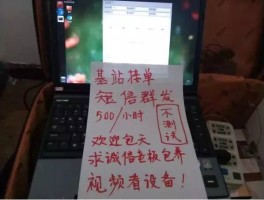 基站接单
短信群发
500/小时
不测试
欢迎包天
求诚信老板包养
视频看设备!